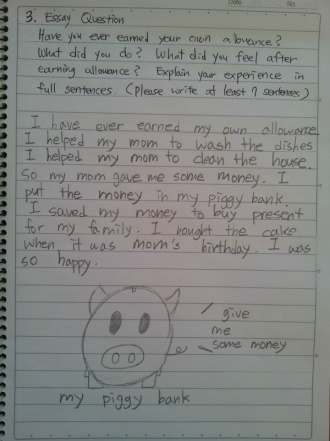 Date
No.
3. Essay Question
Have you ever earned your own allowance?
What did you do? What did you feel after
earning allowance? Explain your experience in
full sentences. (please write at least 7 sentences)
I have ever earned my own allowance.
I helped my mom to wash the dishes
I helped my mom to clean the house.
So my mom gave me some money. I
put the money in my piggy bank.
I saved my money to buy present
for my family. I bought the cake
when it was mom's birthday. I was
so happy.
give
me
some money
my piggy bank